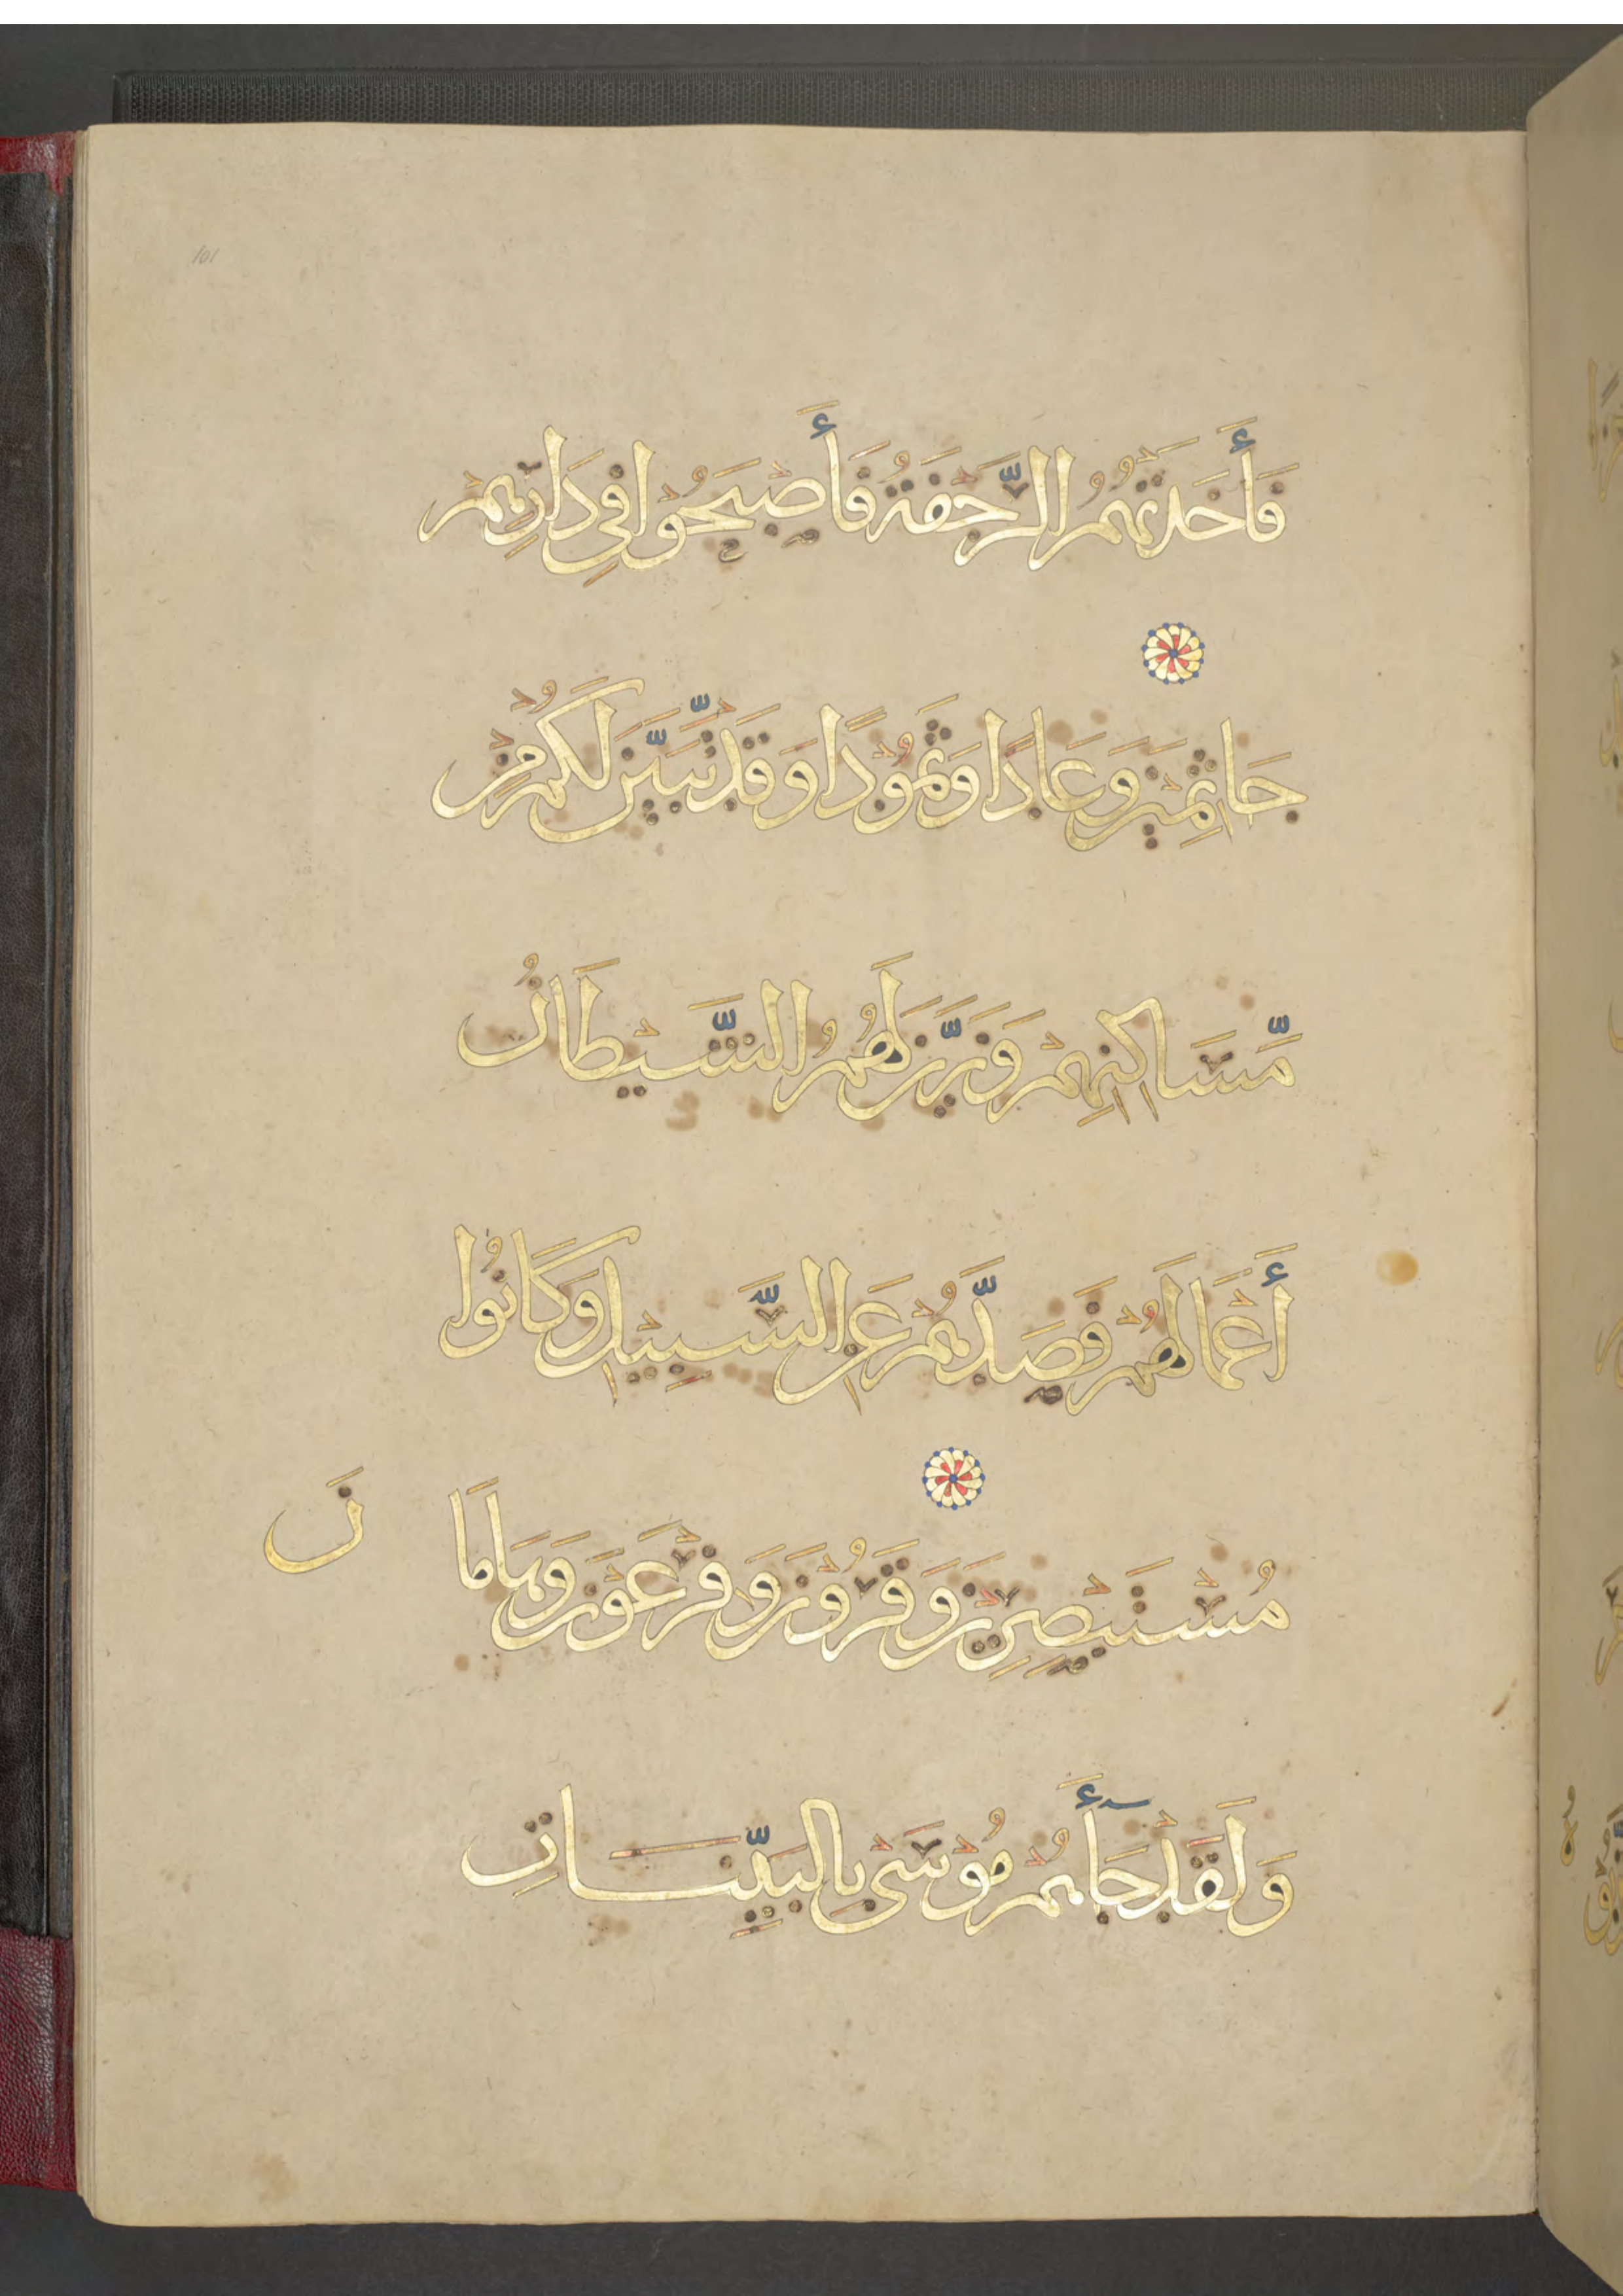 101
فَأَخَذَتْهُمُ الرَّجْفَةُ فَأَصْبَحُوا فِي دَارِهِمْ
جَاثِمِينَ وَعَادًا وَثَمُودًا وَقَدْ تَّبَيَّنَ لَكُمْ مِنْ
مَّسَاكِنِهِمْ وَزَيَّنَ لَهُمُ الشَّيْطَانُ
أَعْمَالَهُمْ فَصَدَّهُمْ عَنِ السَّبِيلِ وَكَانُوا
مُسْتَبْصِرِينَ وَقَرُونَ وَفِرْعَوْنَ وَهَامَا نَ
وَلَقَدْ جَآءَهُمْ مُوْسَى بِالْبَيِّنَاتِ